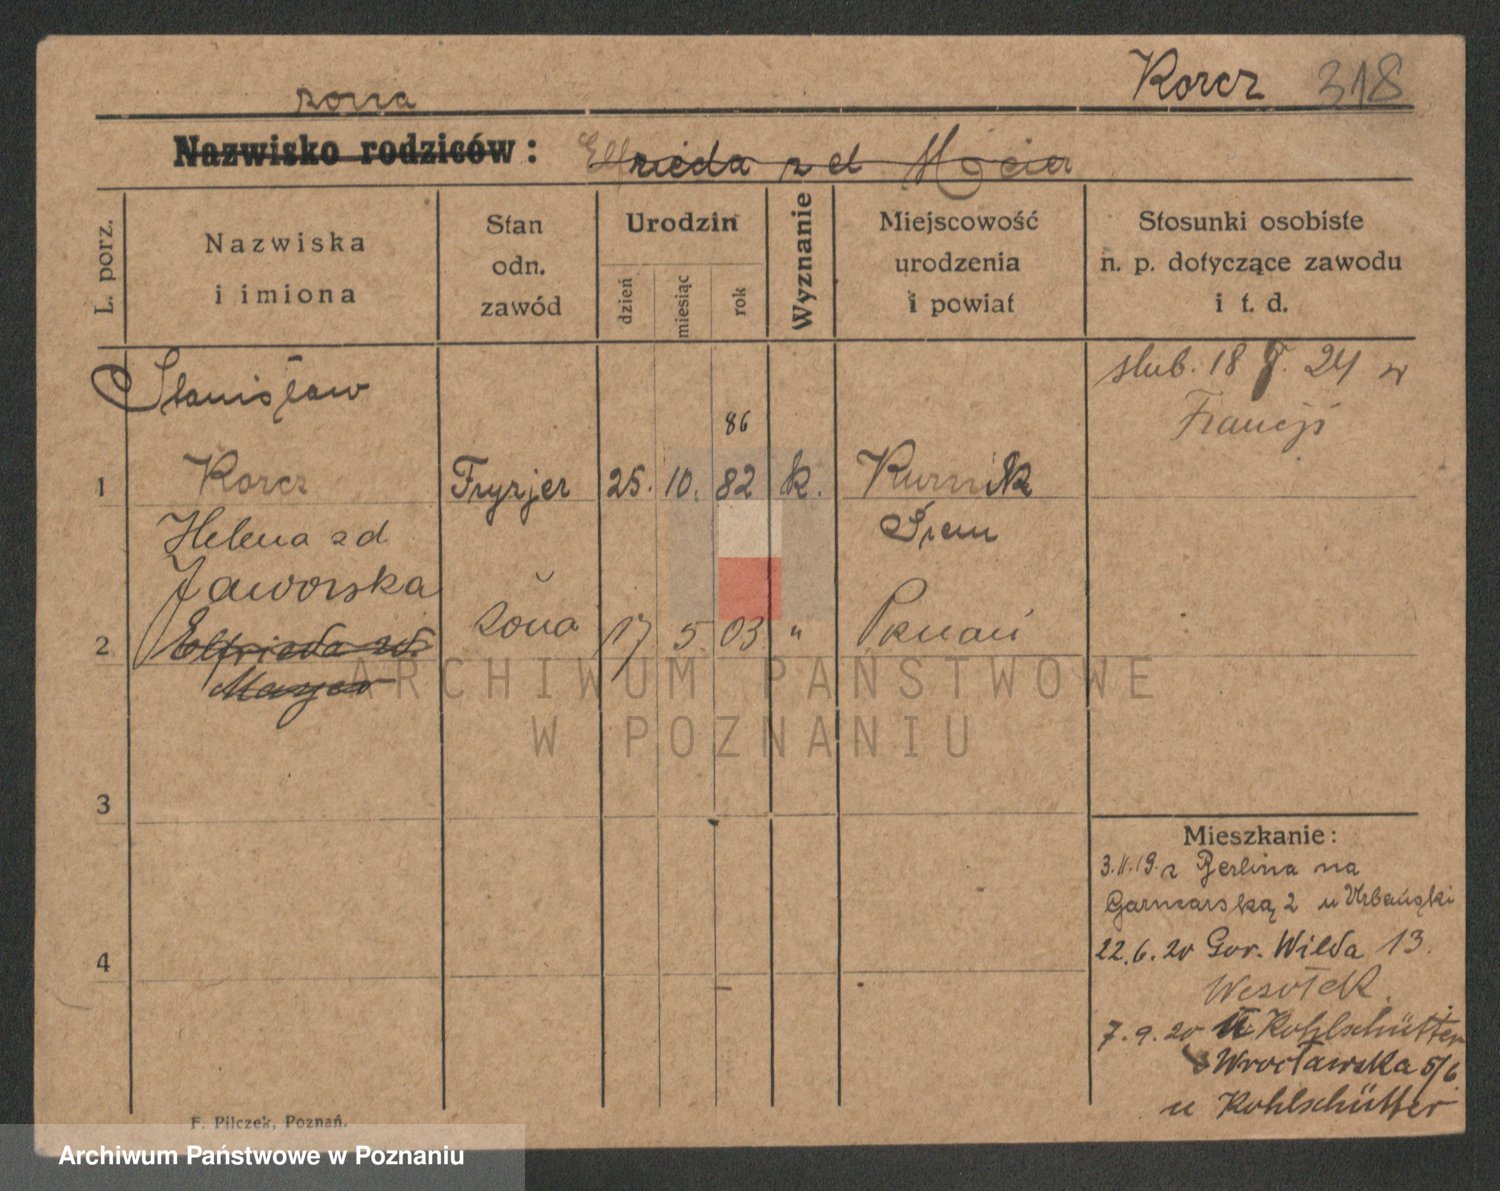 Korcz 318
żona
Nazwisko rodziców: Elfrieda z d Meier
L. porz.
Nazwiska
i imiona
Stan
odn.
zawód
Urodzin
dzień
miesiąc
rok
Wyznanie
Miejscowość
urodzenia
i powiat
Stosunki osobiste
n. p. dotyczące zawodu
i t. d.
Stanisław
ślub. 18 8. 24 w
Francji
86
1 Korcz Fryzjer 25. 10. 82 k. Kurnik
Śrem
Helena z d
Jaworska
2 Elfrieda zd. żona 17 5. 03 " Poznań
Mayer
ARCHIWUM PAŃSTWOWE
W POZNANIU
3
4
Mieszkanie:
3.11.19. z Berlina na
Garncarską 2 u Urbański
22.6.20 Gor. Wilda 13.
Wesołek.
7.9.20 u Kohlschütter
Wrocławska 5/6
u Kohlschütter
F. Pilczek, Poznań.
Archiwum Państwowe w Poznaniu